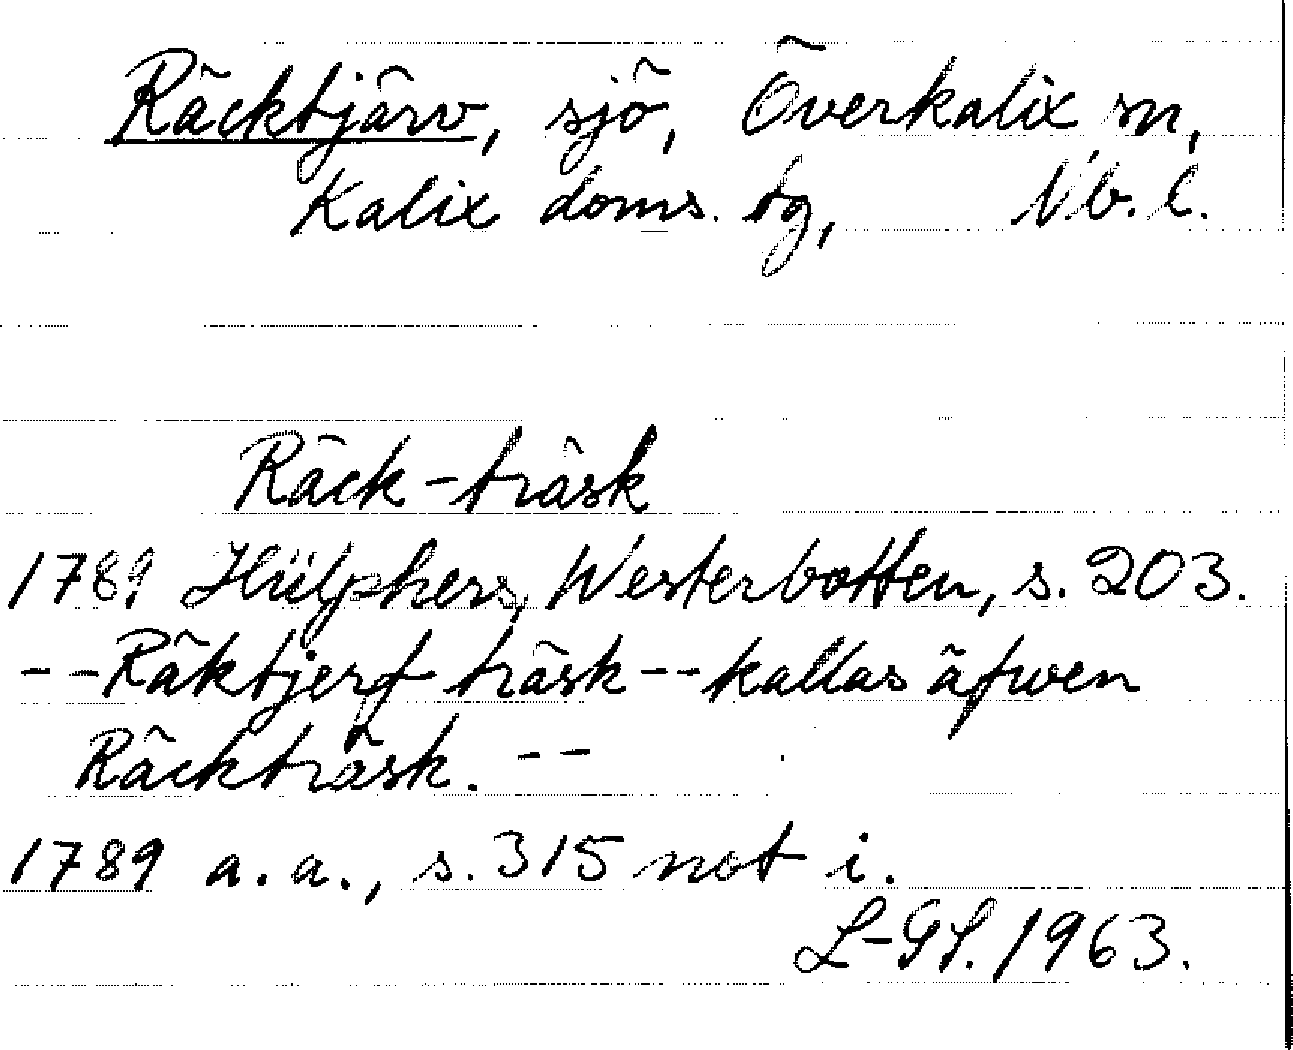 Räcktjärv, sjö, Överkalix sn,
Kalix doms. tg, Nb. l.
Räck-träsk
1789 Hülphers, Westerbotten, s. 203.
--Räktjerf träsk--kallas äfwen
Räckträsk. --
1789 a. a., s. 315 not i.
L-GL. 1963.